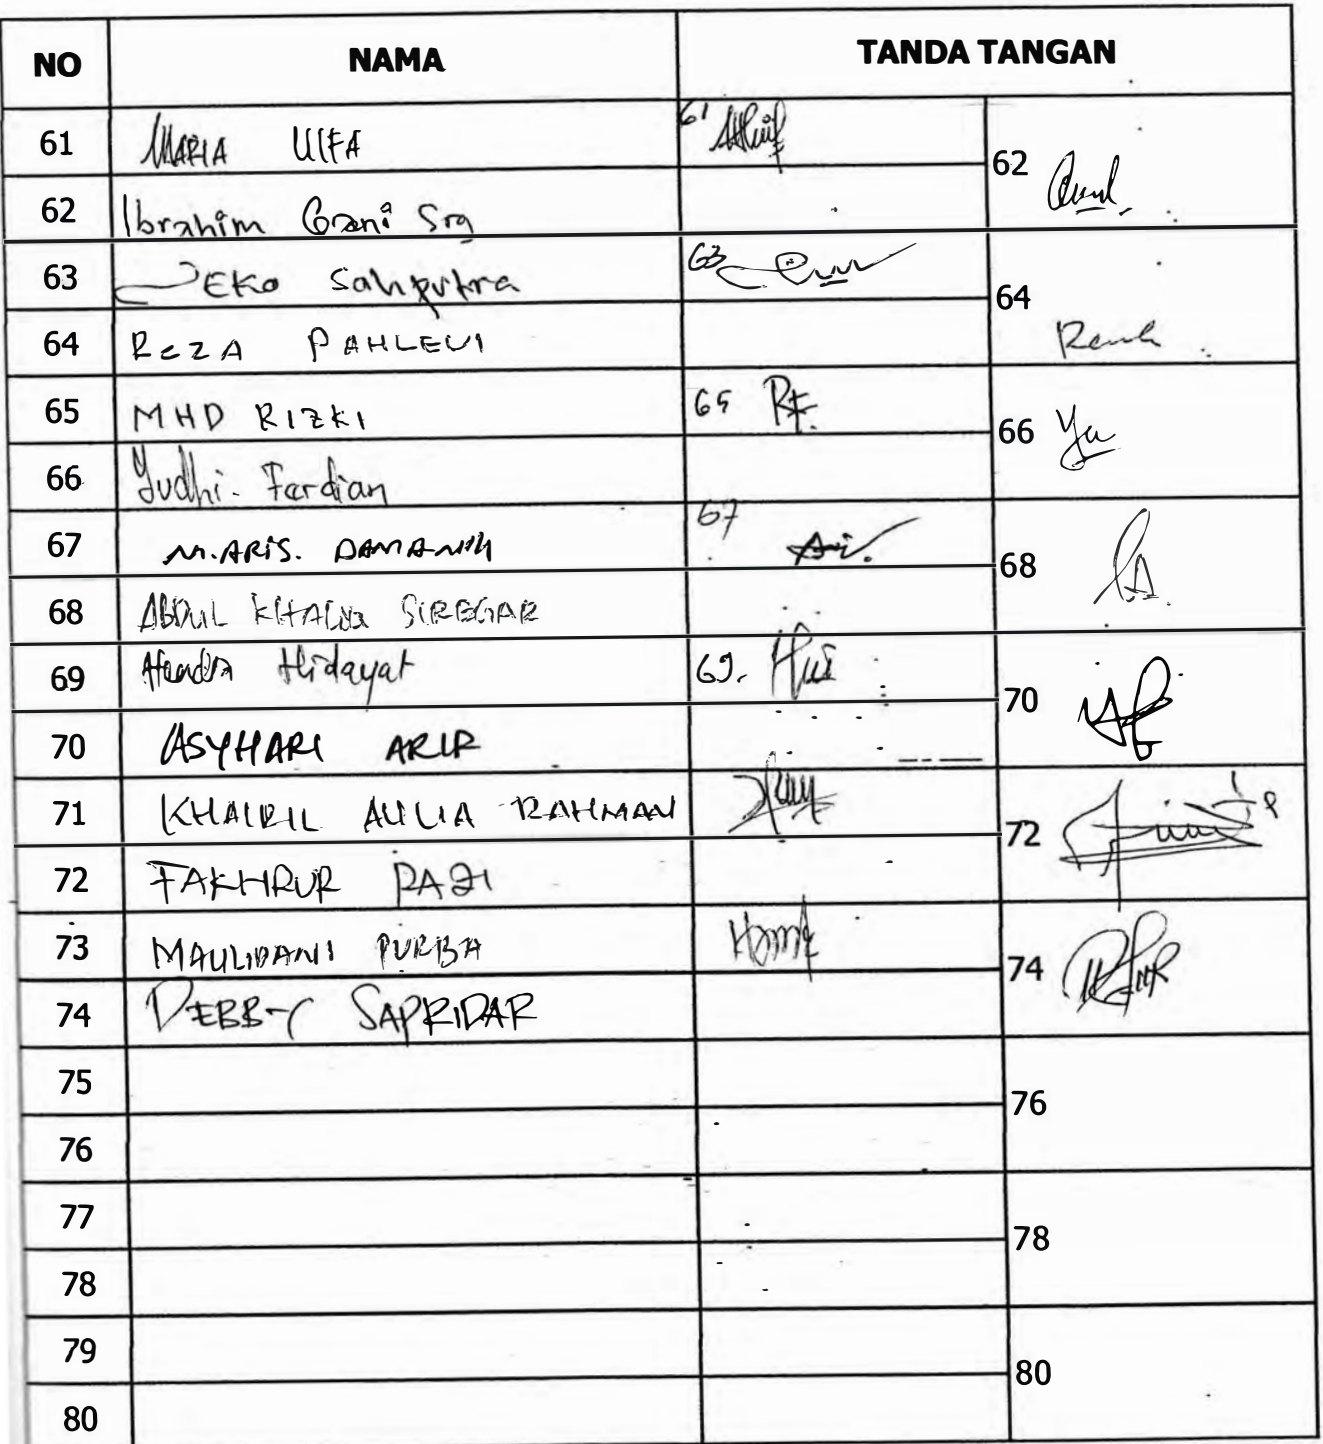 NO NAMA TANDA TANGAN
61 MARIA ULFA 61
62 Ibrahim Grani Srg 62
63 EKO Sahputra 63
64 REZA PAHLEVI 64
65 MHD RIZKI 65 RF.
66 Yudhi. Fardian 66 Yu
67 M.ARIS. DAMANIK 67 Ari.
68 ABDUL KHALIQ SIREGAR 68
69 Hidayat 69.
70 ASYHARI ARIR 70
71 KHAIRIL AULIA RAHMAN
72 FAKHRUR RAZI 72
73 MAULIDANI PURBA
74 DEBBY SAPRIDAR 74
75
76 76
77
78 78
79
80 80